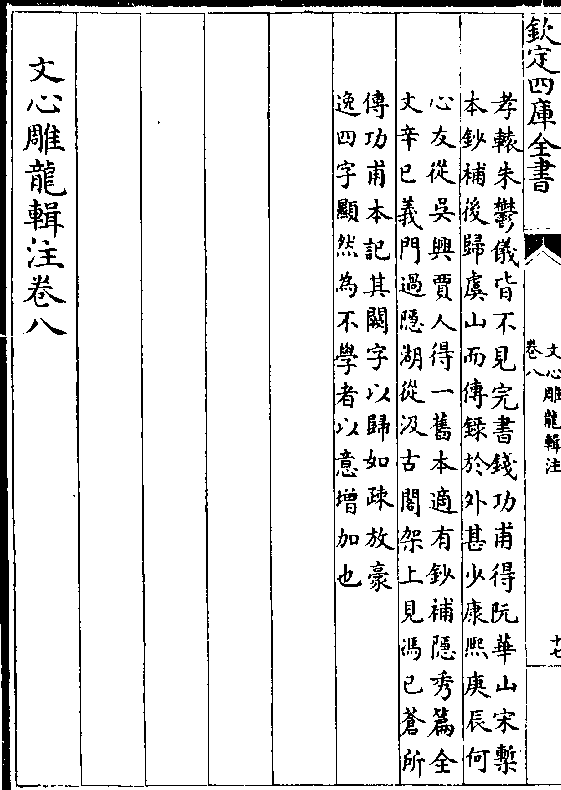 欽定四庫全書
文心雕龍輯注
卷八
十七
孝轅朱鬱儀皆不見完書錢功甫得阮華山宋槧
本鈔補後歸虞山而傳録於外甚少康熙庚辰何
心友從吳興賈人得一舊本適有鈔補隱秀篇全
文辛巳義門過隱湖從汲古閣架上見馮已蒼所
傳功甫本記其闕字以歸如疎放豪
逸四字顯然為不學者以意增加也
文心雕龍輯注卷八